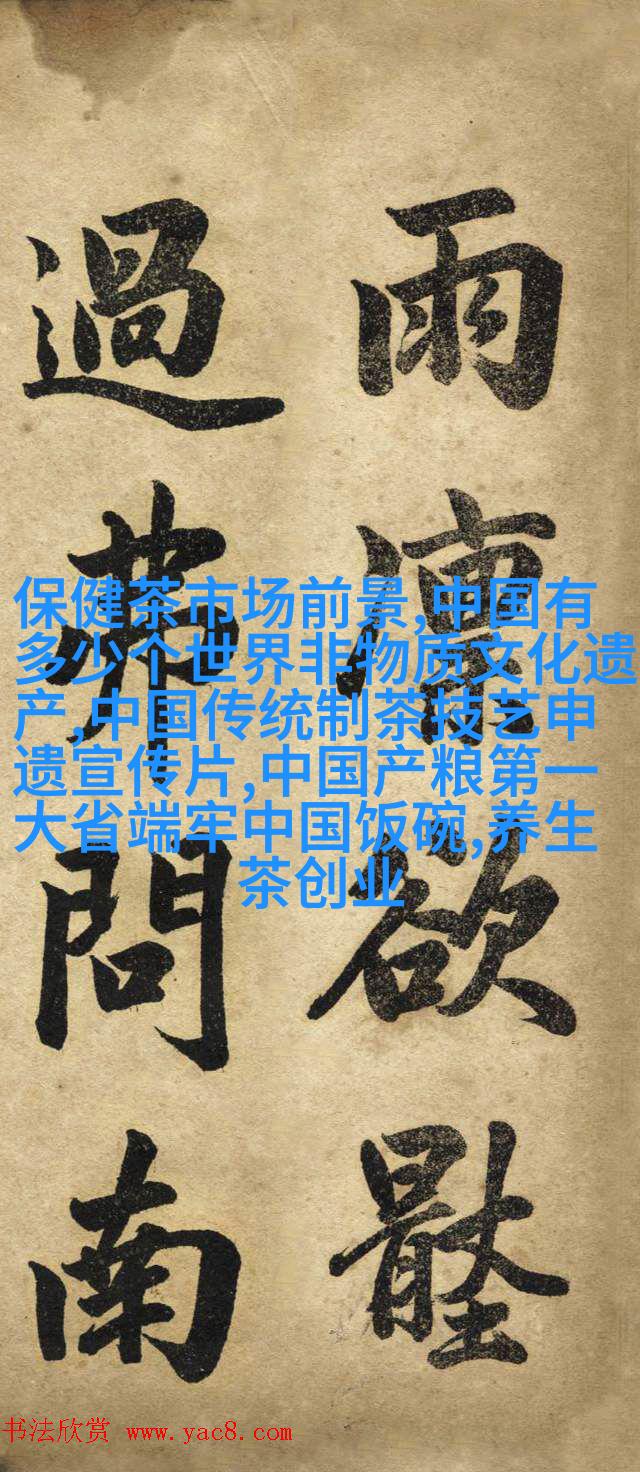 雨欲
過問南
保健茶市场前景,中国有
多少个世界非物质文化遗
产,中国传统制茶技艺申
遗宣传片,中国产粮第一
大省端牢中国饭碗,养生
茶创业
书法欣赏 www.yac8.com